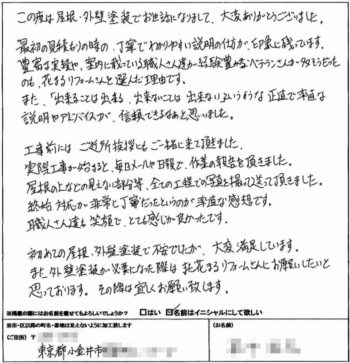 この度は屋根・外壁塗装でお世話になりまして、大変ありがとうございました。
最初の見積もりの時の、丁寧でわかりやすい説明の仕方が、印象に残っています。
豊富な実績や、室内に載っている職人さん達が経験豊かなベテランさんが多そうだった
のも、花まるリフォームさんを選んだ理由です。
また、「出来ることは出来る、出来ないことは出来ない」というような正直で率直な
説明やアドバイスが、信頼できるなあと思いました。
工事前には、ご近所挨拶にもご一緒に来て頂きました。
実際工事が始まると、毎日メールや日報で、作業の報告を頂きました。
屋根の上などの見えない部分等、全ての工程での写真を撮って送って頂きました。
終始対応が非常に丁寧だったというのが率直な感想です。
職人さん達も笑顔で、とても感じが良かったです。
初めての屋根・外壁塗装で不安でしたが、大変満足しています。
また外壁塗装が必要になった際は、また花まるリフォームさんにお願いしたいと
思っております。その際は宜しくお願い致します。
※掲載の際にはお名前を載せてもよろしいでしょうか? □はい ☑名前はイニシャルにして欲しい
※市・区以降の町名・番地は見えないように加工致します
(ご住所) 〒
東京都小金井市
(お名前)